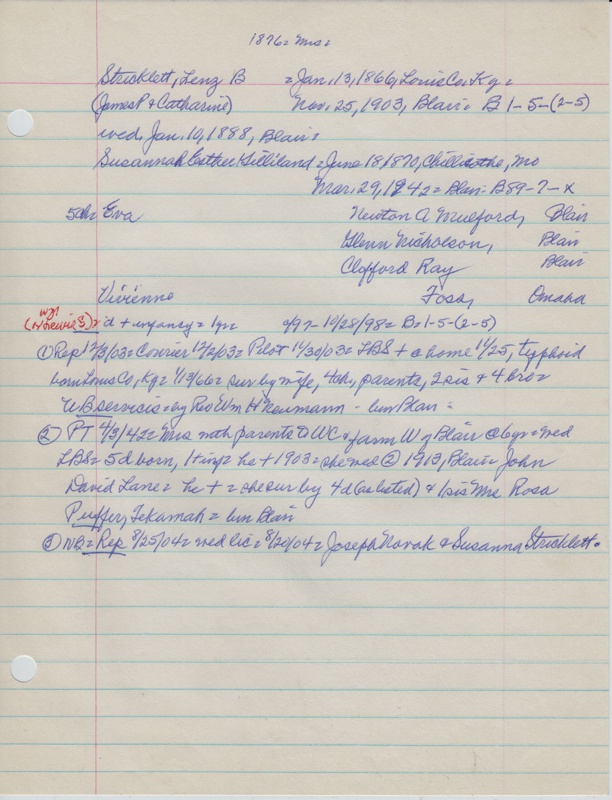 1876 = Mrs =
Stricklett, Lenz B = Jan. 13, 1866, Louis Co, Kg =
(James P & Catharine) Nov. 25, 1903, Blair = B 1-5-(2-5)
wed, Jan. 10, 1888, Blair =
Susannah Esther Gilliland = June 18 1870, Chillicothe, Mo
Mar. 29, 1942 = Blair - B89-7-x
5ch = Eva Newton A Mulford, Blair
Glenn Nicholson, Blair
Clifford Ray Blair
Vivienne Foss, Omaha
d + infancy = 1yr 9/97 - 10/28/98 = B = 1-5-(2-5)
① Rep 12/3/03 = Courier 12/2/03 = Pilot 11/30/03 = LBS + @ home 11/25, typhoid
born Louis Co, Kg = 1/13/66 = sur by wife, 4ch, parents, 2 sis & 4 bro =
UB servis = by Rev Wm H Neumann - bur Blair =
② PT 4/3/42 = Mrs with parents to WC & farm W of Blair @ 6yr = wed
LBS = 5 d born, 1 + inf = he + 1903 = she wed ② 1913, Blair = John
David Lane = he + = she sur by 4d (as listed) & 1 sis Mrs Rosa
Puffer, Tekamah = bur Blair
③ NB = Rep 8/25/04 = wed lic = 8/20/04 = Joseph Novak & Susanna Stricklett =